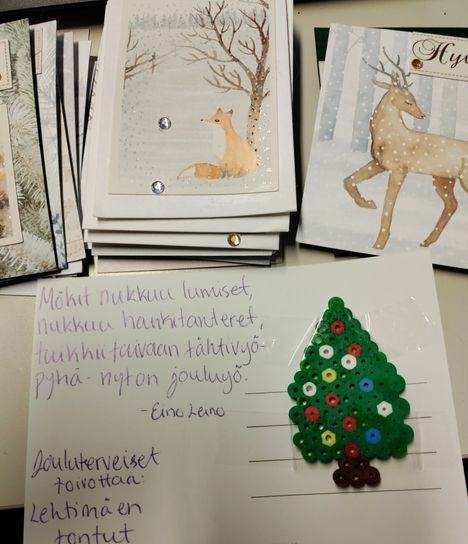 Hyv
Mökit nukkuu lumiset,
nukkuu hankitanteret,
tuikkii taivaan tähtivyö-
pyhä- nyt on jouluyö.
-Eino Leino
Jouluterveiset
toivottaa:
Lehtimäen
tontut